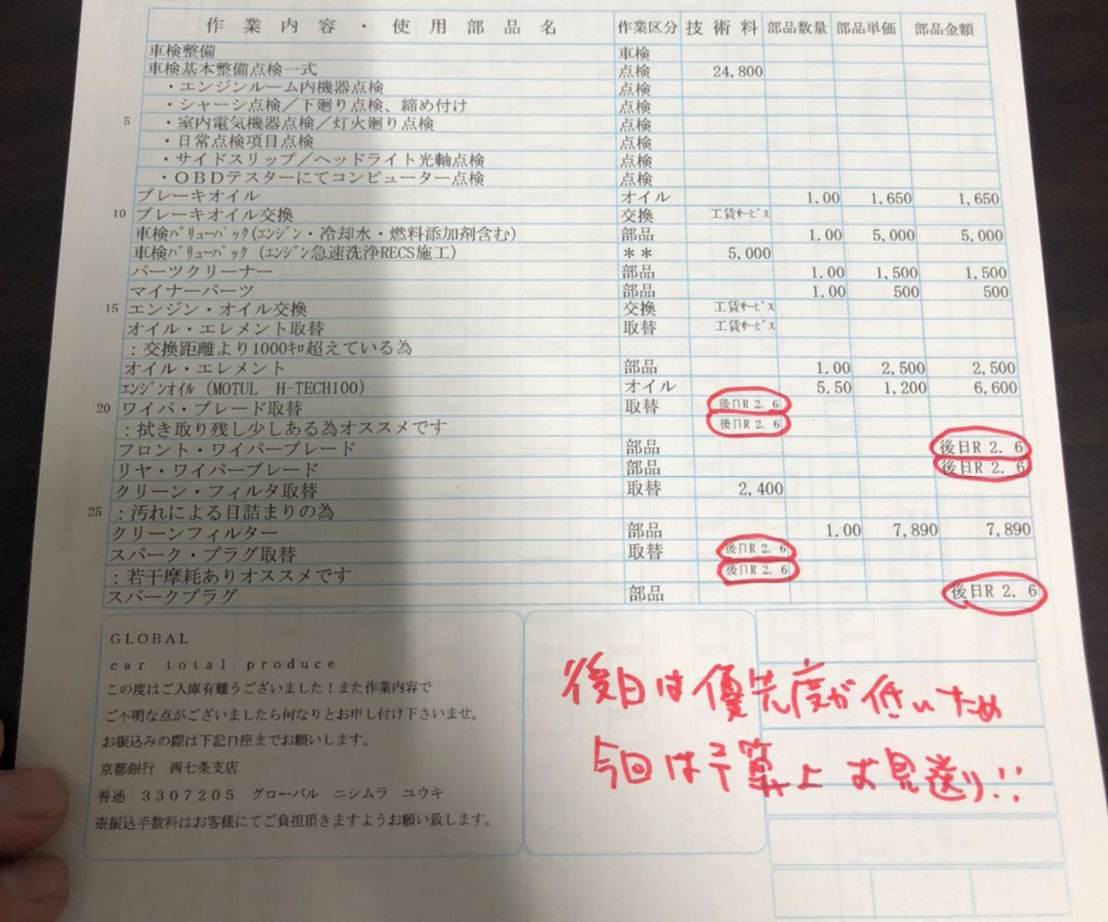 作業内容・使用部品名 作業区分 技術料 部品数量 部品単価 部品金額
車検整備 車検
車検基本整備点検一式 点検 24,800
・エンジンルーム内機器点検 点検
・シャーシ点検／下廻り点検、締め付け 点検
5 ・室内電気機器点検／灯火廻り点検 点検
・日常点検項目点検 点検
・サイドスリップ／ヘッドライト光軸点検 点検
・OBDテスターにてコンピューター点検 点検
ブレーキオイル オイル 1.00 1,650 1,650
10 ブレーキオイル交換 交換 工賃ｻｰﾋﾞｽ
車検ﾊﾞﾘｭｰﾊﾟｯｸ(ｴﾝｼﾞﾝ・冷却水・燃料添加剤含む) 部品 1.00 5,000 5,000
車検ﾊﾞﾘｭｰﾊﾟｯｸ (ｴﾝｼﾞﾝ急速洗浄RECS施工) ＊＊ 5,000
パーツクリーナー 部品 1.00 1,500 1,500
マイナーパーツ 部品 1.00 500 500
15 エンジン・オイル交換 交換 工賃ｻｰﾋﾞｽ
オイル・エレメント取替 取替 工賃ｻｰﾋﾞｽ
：交換距離より1000ｷﾛ超えている為
オイル・エレメント 部品 1.00 2,500 2,500
ｴﾝｼﾞﾝｵｲﾙ (MOTUL H-TECH100) オイル 5.50 1,200 6,600
20 ワイパ・ブレード取替 取替 後日R2.6
：拭き取り残し少しある為オススメです 後日R2.6
フロント・ワイパーブレード 部品 後日R2.6
リヤ・ワイパーブレード 部品 後日R2.6
クリーン・フィルタ取替 取替 2,400
25 ：汚れによる目詰まりの為
クリーンフィルター 部品 1.00 7,890 7,890
スパーク・プラグ取替 取替 後日R2.6
：若干摩耗ありオススメです 後日R2.6
スパークプラグ 部品 後日R2.6
GLOBAL
car total produce
この度はご入庫有難うございました！また作業内容で
ご不明な点がございましたら何なりとお申し付け下さいませ。
お振込みの際は下記口座までお願いします。
京都銀行 西七条支店
普通 3307205 グローバル ニシムラ ユウキ
※振込手数料はお客様にてご負担頂きますようお願い致します。
後日は優先度が低いため
今回は予算上お見送り!!